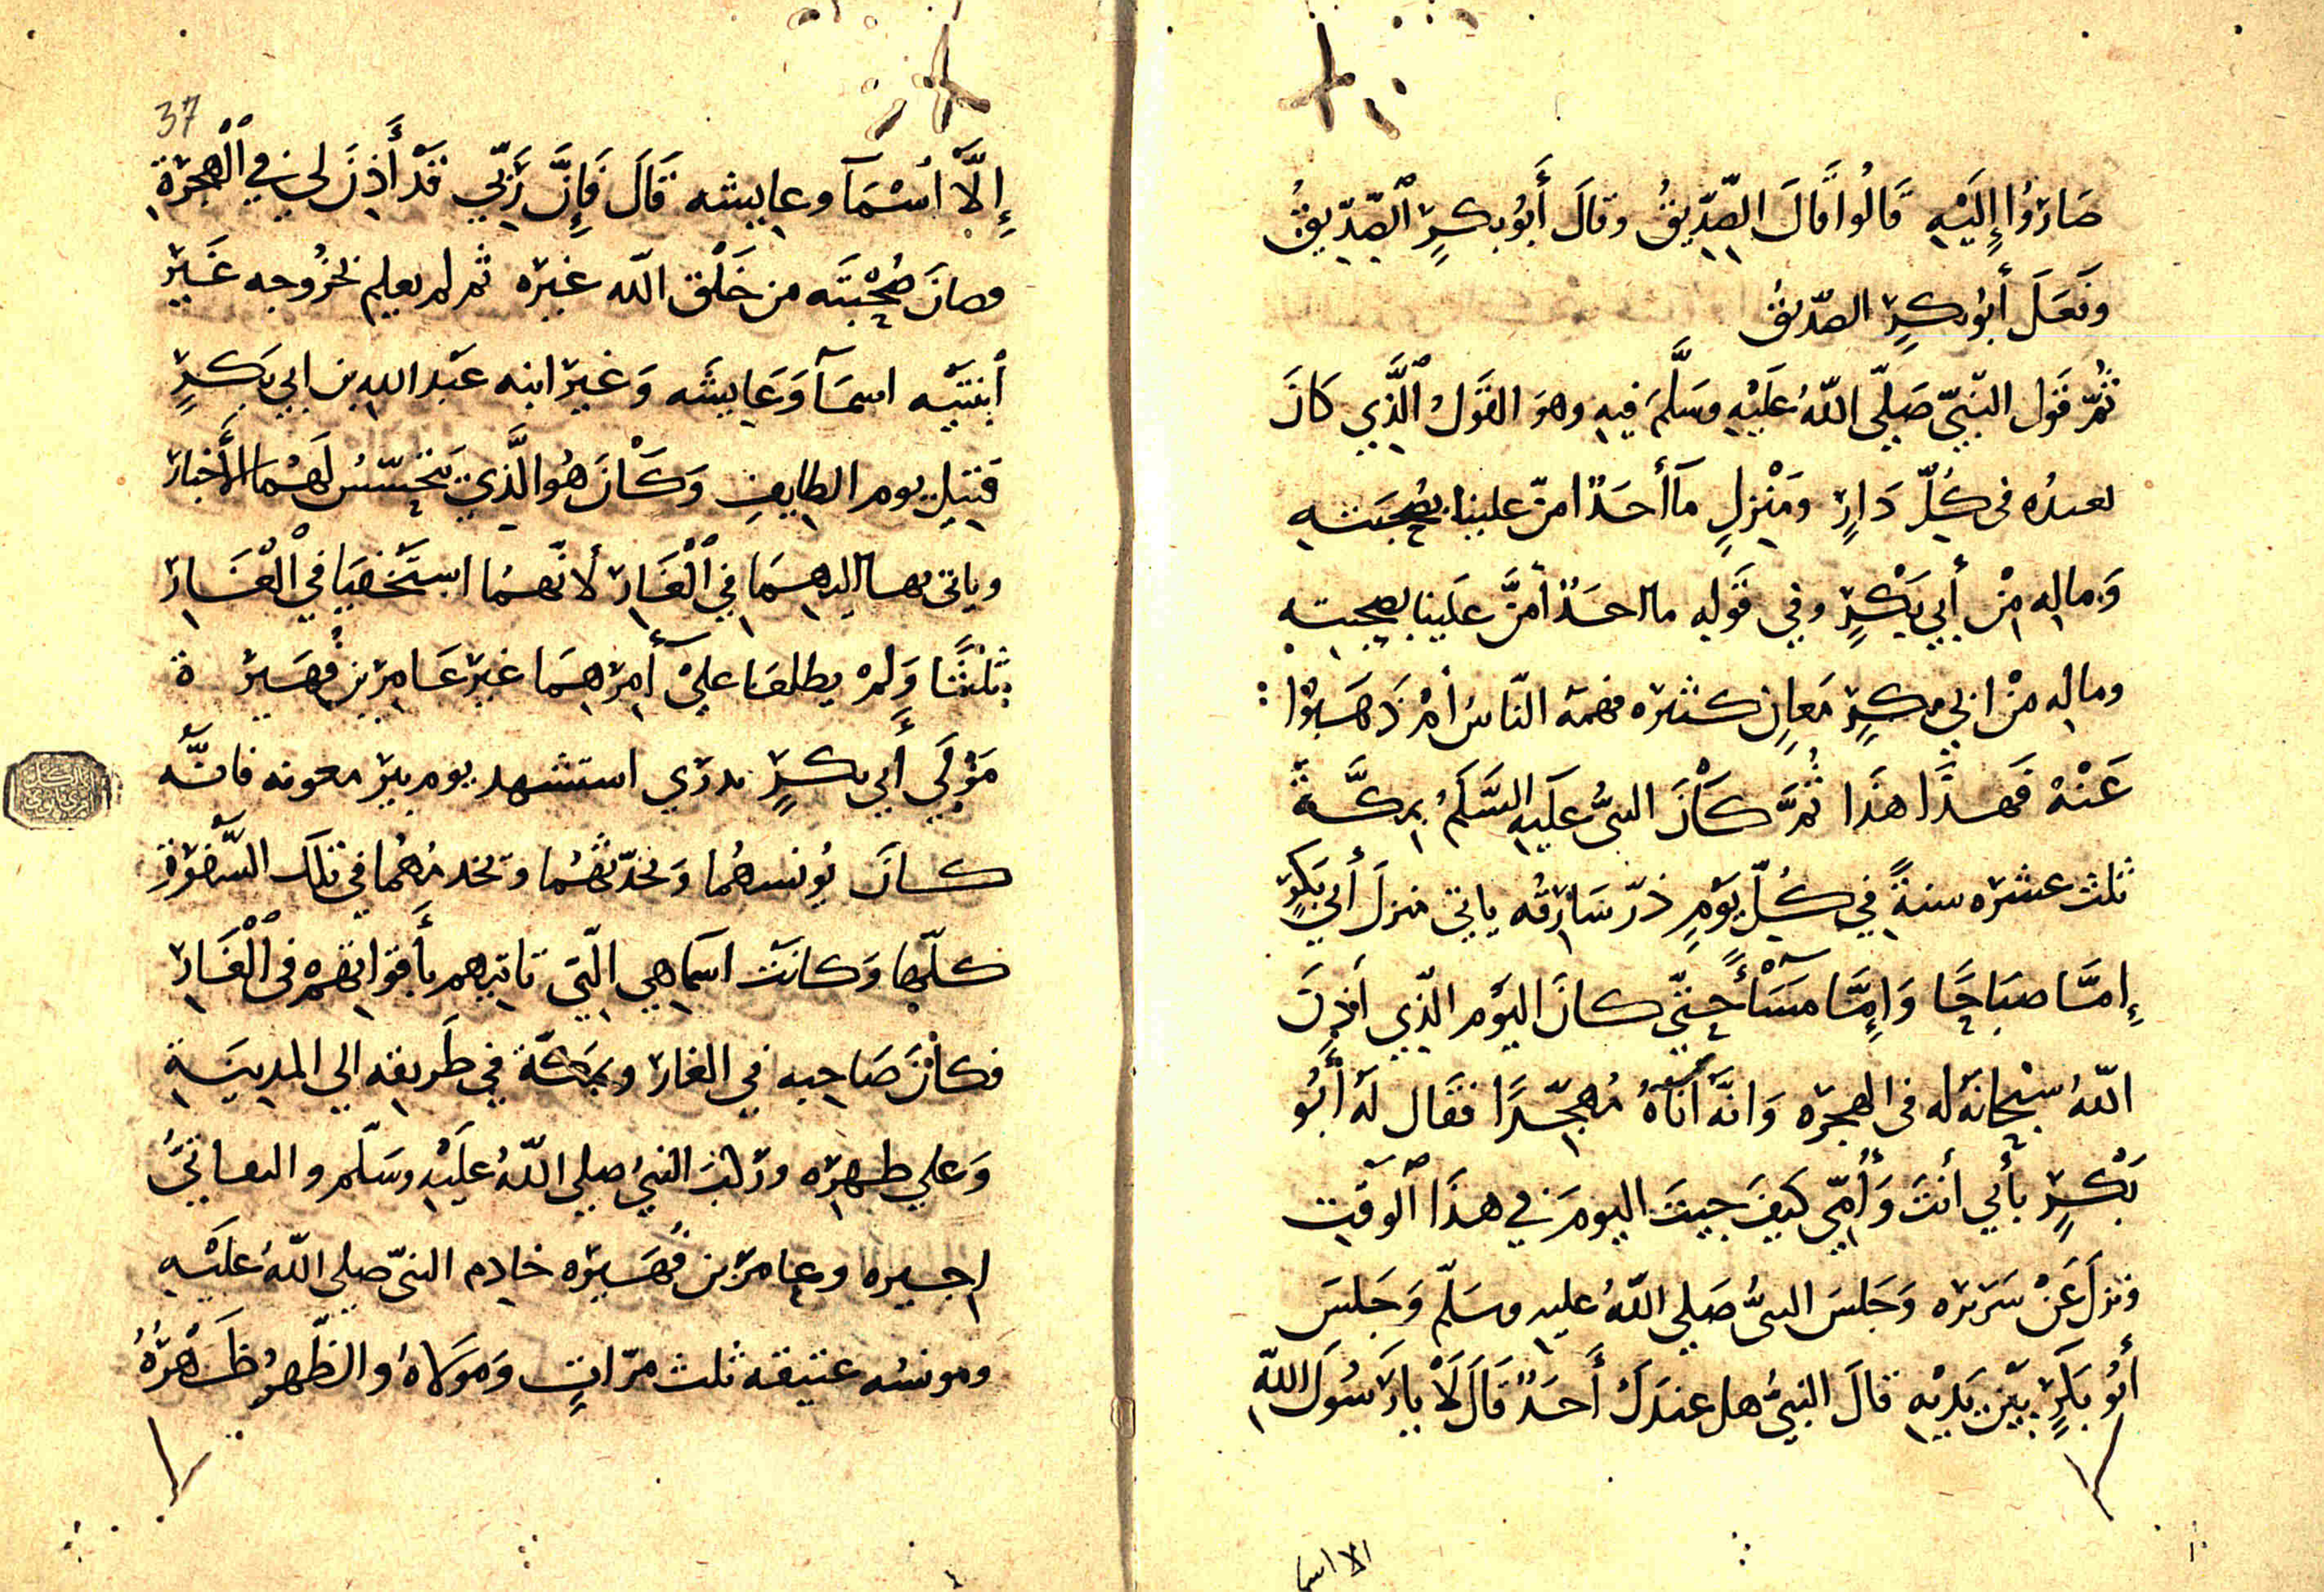 صَارُوا إِلَيْهِ قَالُوا قَالَ الصِّدِّيقُ وقالَ أَبُو بكرٍ الصِّدِّيقُ
وفَعَلَ أَبُو بكرٍ الصّدّيقُ
ثُمَّ قَول النّبيّ صَلّى اللّهُ عَلَيْهِ وسَلَّمَ فيهِ وهوَ القَولُ الَّذي كانَ
بعدهُ فى كُلّ دَارٍ ومَنْزِلٍ مَآ أَحَدٌ امنّ علينا بصُحْبَتهِ
وَمالِه مِنْ أَبي بَكْرٍ وفي قَولِهِ ما احَدٌ أمَنَّ عَلَينا بصحبتهِ
وماله مِنْ ابي بكرٍ مَعانٍ كثيره فهمهُ النّاسُ أمْ ذَهَبُوا
عَنْهُ فَهذَا هذَا ثُمَّ كَانَ النبىُّ عَلَيهِ السَّلَمُ بمَكَّةَ
ثلث عشره سنةً في كُلّ يَوْمٍ ذرّ شَارِقُه ياتي منزلَ أبي بَكرٍ
إمَّا صبَاحًا وَإِمَّا مَسَآءً حتّى كانَ اليَوْم الّذي اَذِنَ
اللّهُ سبْحانَهُ له فى الهجره وَانَّهُ أتَاهُ مُهَجِّرًا فقَال لَه أبُو
بَكْرٍ بأَبي أنتَ وَأُمّي كَيفَ جيتَ اليومَ في هذَا الوَقتِ
ونزلَ عَنْ سَريره وَجَلسَ النبىُّ صَلي اللّهُ عليهِ وسَلّم وَجَلسَ
أبُو بَكرٍ بَيْن يَدَيْهِ قالَ النبيُّ هل عندَكَ أَحَدٌ قَالَ لَا يارَسُولَ اللّه
الا اسما
37
إِلَّا اسْمَآ وعايشه قَالَ فَإِنَّ رَبّي قَدْ أَذِنَ لي في الْهِجْرَةِ
وصانَ صُحْبَتَه من خَلْق اللّه غيره ثم لم يعلم بخرُوجه غَير
أبنتَيْه اسمآ وَعَايشَه وَغير ابنه عَبْد اللهِ بن ابي بَكرٍ
قتيل يوم الطايف وَكَانَ هُوَ الَّذي يتحَسّسُ لَهُمَا الأَخبارَ
وياتى بها اليهِمَا فِي الْغَارِ لأنّهما استَخْفيَا في الْغَارِ
ثَلثًا وَلمْ يطلعَا عليْ أمرِهِمَا غير عَامِر بنِ فُهَيرَة
مَوْلَي أَبي بكرٍ بدرَي استشهد يوم بير معونه فانَّهُ
كانَ يُونسهُما وَيُحدّثُهُما ويَخدمُهُما في تلكَ السَّفْرَةِ
كلّهِا وَكانَت اسَما هي الّتي تاتيهم بأَقْوَاتِهِم فى الْغَارِ
فكانَ صَاحِبه في الغار وبمَكّة في طَريقه الي المدينَةِ
وَعلي ظهرِه ورَكبَ النبيُ صلي اللّهُ عَلَيْهِ وسَلّم والثانيُ
اجيره وعامر بن فُهَيره خادم النبىّ صلي اللّهُ عَلَيْهِ
ومونسُه عتيقه ثلث مرّاتٍ وَمَولَاهُ والظّهرُ ظَهْرُهُ